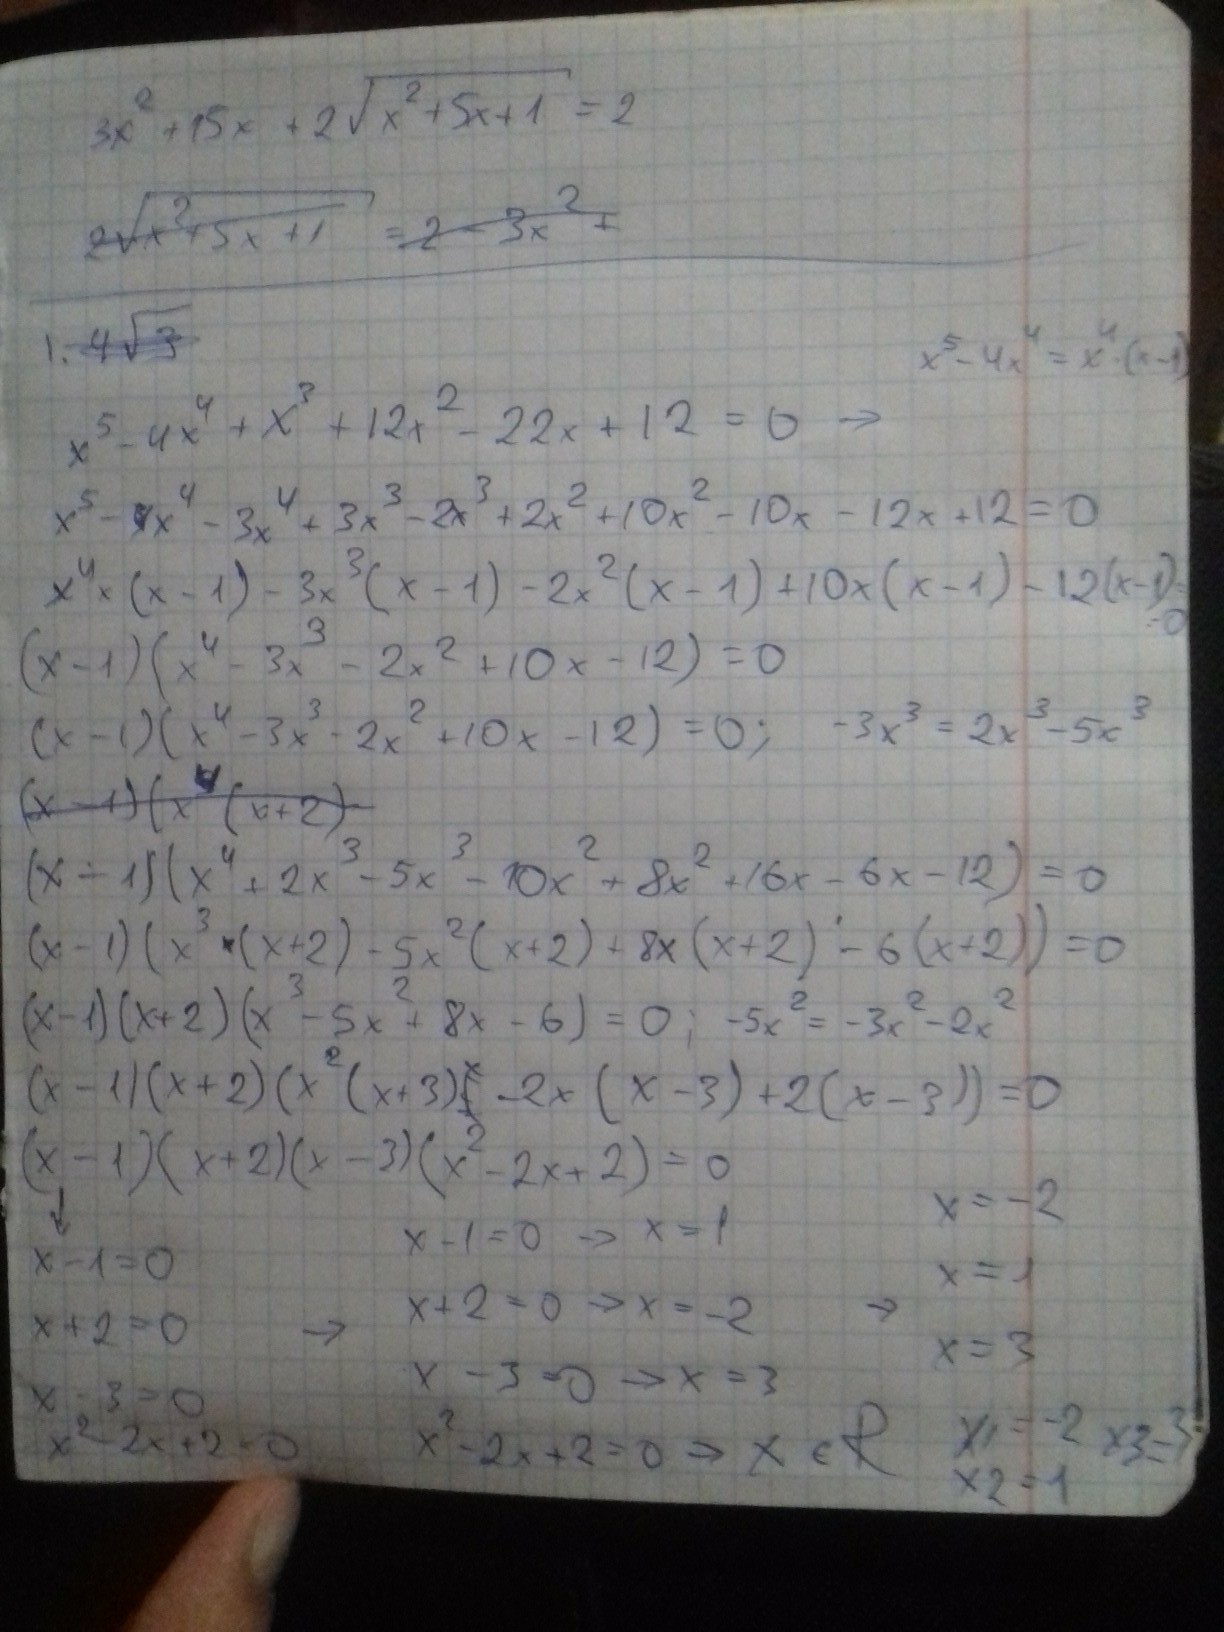 3x² + 15x + 2√(x² + 5x + 1) = 2
2√(x² + 5x + 1) = 2 - 3x² +
1. 4√3
x⁵ - 4x⁴ = x⁴·(x-1)
x⁵ - 4x⁴ + x³ + 12x² - 22x + 12 = 0 →
x⁵ - x⁴ - 3x⁴ + 3x³ - 2x³ + 2x² + 10x² - 10x - 12x + 12 = 0
x⁴ × (x - 1) - 3x³(x - 1) - 2x²(x - 1) + 10x(x - 1) - 12(x-1) =
=0
(x - 1)(x⁴ - 3x³ - 2x² + 10x - 12) = 0
(x - 1)(x⁴ - 3x³ - 2x² + 10x - 12) = 0; -3x³ = 2x³ - 5x³
(x - 1)(x⁴(x+2)
(x - 1)(x⁴ + 2x³ - 5x³ - 10x² + 8x² + 16x - 6x - 12) = 0
(x - 1)(x³·(x+2) - 5x²(x+2) + 8x(x+2) - 6(x+2)) = 0
(x - 1)(x+2)(x³ - 5x² + 8x - 6) = 0; -5x² = -3x² - 2x²
(x - 1)(x+2)(x²(x+3) - 2x(x - 3) + 2(x - 3)) = 0
(x - 1)(x+2)(x - 3)(x² - 2x + 2) = 0
↓
x - 1 = 0
x + 2 = 0 →
x - 3 = 0
x² - 2x + 2 = 0
x - 1 = 0 → x = 1
x + 2 = 0 → x = -2 →
x - 3 = 0 → x = 3
x² - 2x + 2 = 0 → x ∈ R
x = -2
x = 1
x = 3
x1 = -2 x3 = 3
x2 = 1